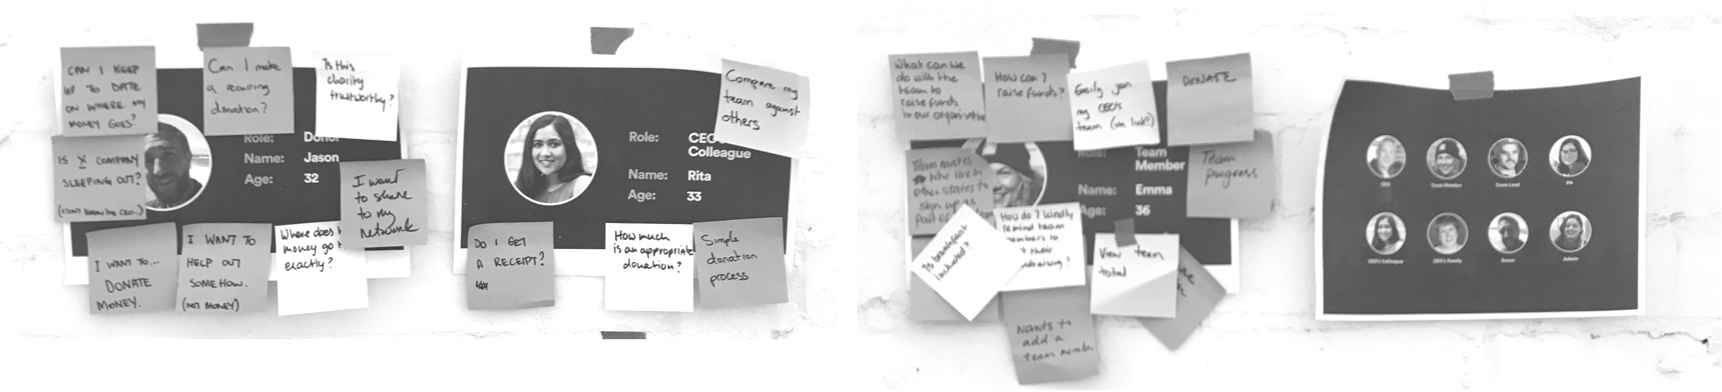 CAN I KEEP
UP TO DATE
ON WHERE MY
MONEY GOES?
Can I make
a recurring
donation?
Is this
charity
trustworthy?
IS X COMPANY
SLEEPING OUT?
(I DON'T KNOW THE CEO...)
Role: Donor
Name: Jason
Age: 32
I want
to share
to my
Network
I WANT TO...
DONATE
MONEY.
I WANT TO
HELP OUT
SOMEHOW.
(NOT MONEY)
Where does
money go
exactly?
Compare my
team against
others
Role: CEO
Colleague
Name: Rita
Age: 33
DO I GET
A RECEIPT?
How much
is an appropriate
donation?
Simple
donation
process
What can we
do with the
team to
raise funds
in our organisation
How can I
raise funds?
Easily join
my CEO's
team (via link?)
DONATE
Team mates
who live in
other states to
sign up as
part of
Role: Team
Member
Name: Emma
Age: 36
Team
progress
Is breakfast
included?
How do I kindly
remind team
members to
their
fundraising?
View team
total
Wants to
add a
team member
CEO
Team Member
Team Lead
PA
CEO's Colleague
CEO's Family
Donor
Admin